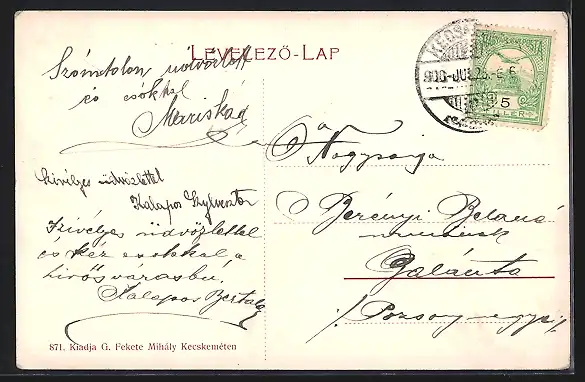 LEVELEZŐ-LAP
Számtalan üdvözlet
és csókkal
Mariskád
szívélyes üdvözlettel
Kalapos Szylveszter
Szívélyes üdvözlettel
és kéz csókkal a
hirös városbul
Kalapos Bertalan
871. Kiadja G. Fekete Mihály Kecskeméten
Nagysága
Berényi Beláné
urnőnek
Galánta
Pozsony megye
5